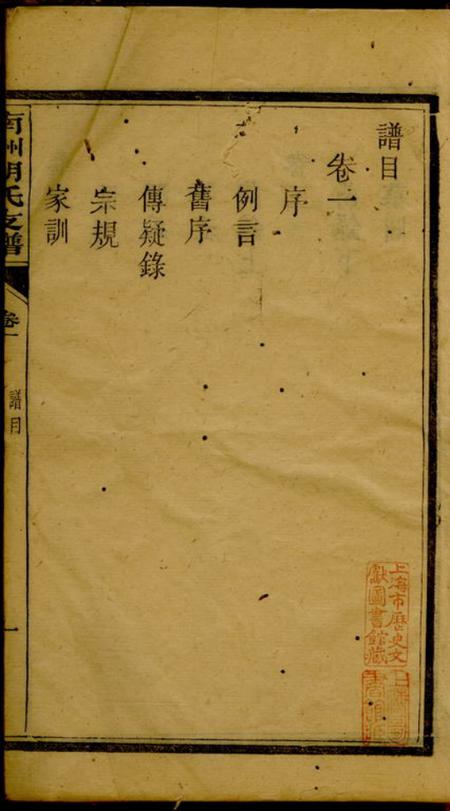 譜目
卷一
序
例言
舊序
傳疑錄
宗規
家訓
南州胡氏支譜
卷一
譜目
一
上海市歷史文
獻圖書館藏